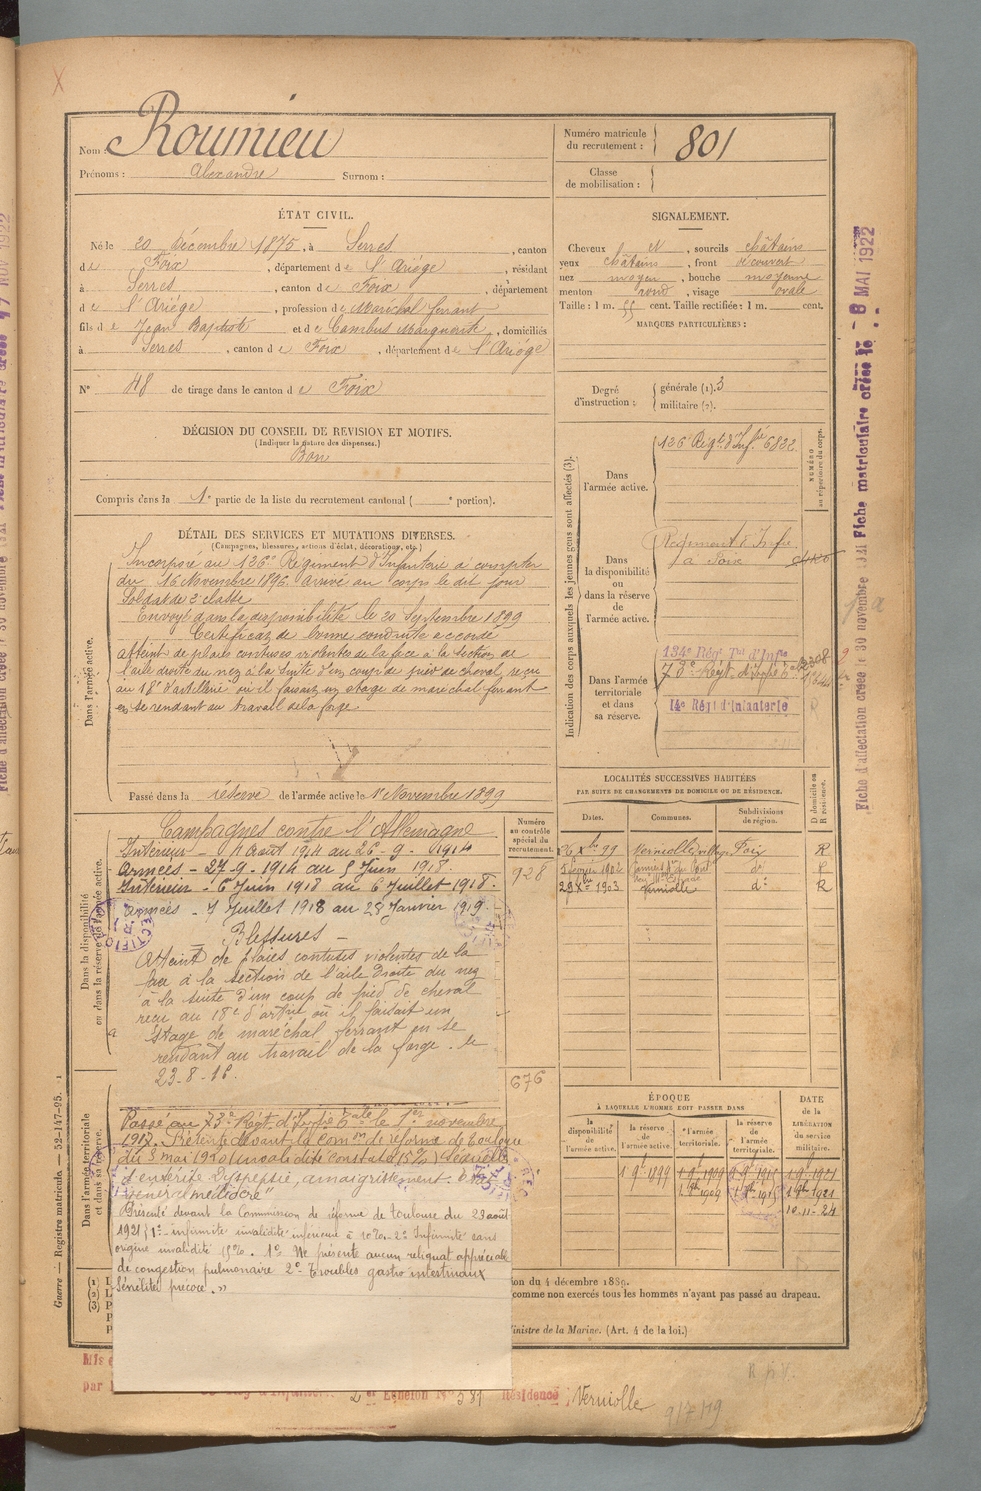 Nom : Roumieu
Prénoms : Alexandre Surnom :
Numéro matricule du recrutement : 801
Classe de mobilisation :
ÉTAT CIVIL.
Né le 20 Décembre 1875, à Serres, canton
de Foix, département de l'Ariège, résidant
à Serres, canton de Foix, département
de l'Ariège, profession de Maréchal ferrant
fils de Jean Baptiste et de Cambus Marguerite, domiciliés
à Serres, canton de Foix, département de l'Ariège
N° 48 de tirage dans le canton de Foix
SIGNALEMENT.
Cheveux et, sourcils châtains
yeux châtains, front découvert
nez moyen, bouche moyenne
menton rond, visage ovale
Taille : 1 m. 55 cent. Taille rectifiée : 1 m. cent.
MARQUES PARTICULIÈRES :
Degré d'instruction : générale (1). 3
militaire (2).
DÉCISION DU CONSEIL DE REVISION ET MOTIFS.
(Indiquer la nature des dispenses.)
Bon
Compris dans la 1e partie de la liste du recrutement cantonal ( e portion).
DÉTAIL DES SERVICES ET MUTATIONS DIVERSES.
(Campagnes, blessures, actions d'éclat, décorations, etc.)
Dans l'armée active.
Incorporé au 126e Régiment d'Infanterie à compter
du 16 Novembre 1896. Arrivé au corps le dit jour
Soldat de 2e classe
Envoyé dans la disponibilité le 20 Septembre 1899
Certificat de bonne conduite accordé
Atteint de plaies contuses violentes de la face à la section de
l'aile droite du nez à la suite d'un coup de pied de cheval, reçu
au 18e d'artillerie où il faisait un stage de maréchal ferrant
en se rendant au travail de la forge
Passé dans la réserve de l'armée active le 1er Novembre 1899
Indication des corps auxquels les jeunes gens sont affectés (3).
Dans l'armée active.
126 Régt. d'Infie 6832
NUMÉRO au répertoire du corps.
Dans la disponibilité ou dans la réserve de l'armée active.
Régiment d'Infie
à Foix
Dans l'armée territoriale et dans sa réserve.
134e Rég Tal d'Infie
73e Régt. d'Infie
14e Régt d'Infanterie
LOCALITÉS SUCCESSIVES HABITÉES
PAR SUITE DE CHANGEMENTS DE DOMICILE OU DE RÉSIDENCE.
Dates. Communes. Subdivisions de région. D domicile ou R résidence.
26 Xbre 99 Verniolle, village Foix R
5 février 1902 do R
29 Xbre 1903 Verniolle do R
Dans la disponibilité ou dans la réserve de l'armée active.
Numéro au contrôle spécial du recrutement.
928
Campagnes contre l'Allemagne
Intérieur - 4 Août 1914 au 26-9-1914
Armées - 27-9-1914 au 5 Juin 1918.
Intérieur - 6 Juin 1918 au 6 Juillet 1918.
Armées - 7 Juillet 1918 au 25 Janvier 1919.
Blessures -
Atteint de plaies contuses violentes de la
face à la section de l'aile droite du nez
à la suite d'un coup de pied de cheval
reçu au 18e d'artie où il faisait un
stage de maréchal ferrant en se
rendant au travail de la forge. le
23-8-16.
676
Dans l'armée territoriale et dans sa réserve.
Passé au 73e Régt. d'Infie Tale le 1er novembre
1917. Présenté devant la comon de réforme de Toulouse
du 3 mai 1920 (invalidité constatée 15%)
d'entérite Dyspepsie, amaigrissement. État
général médiocre"
Présenté devant la Commission de réforme de toulouse du 29 août
1921 { 1° - infirmité invalidité inférieure à 10%. 2° Infirmité sans
origine invalidité 15%. 1° Ne présente aucun reliquat appréciable
de congestion pulmonaire 2° Troubles gastro intestinaux
Sénilité précoce. »
ÉPOQUE
À LAQUELLE L'HOMME DOIT PASSER DANS
la disponibilité de l'armée active. la réserve de l'armée active. l'armée territoriale. la réserve de l'armée territoriale.
DATE de la LIBÉRATION du service militaire.
1 9bre 1899 1 9bre 1909 1 9bre 1915 1 9bre 1921
1 9bre 1909 1 9bre 1915 1 9bre 1921
10-11-24
(1)
(2)
(3)
ion du 4 décembre 1889.
comme non exercés tous les hommes n'ayant pas passé au drapeau.
Ministre de la Marine. (Art. 4 de la loi.)
Guerre — Registre matricule. — 52-147-95. 1
Mis
par
2er Echelon N° 581 Résidence Verniolle
Fiche matriculaire créée le 8 MAI 1922
Fiche d'affectation créée le 30 novembre 1921